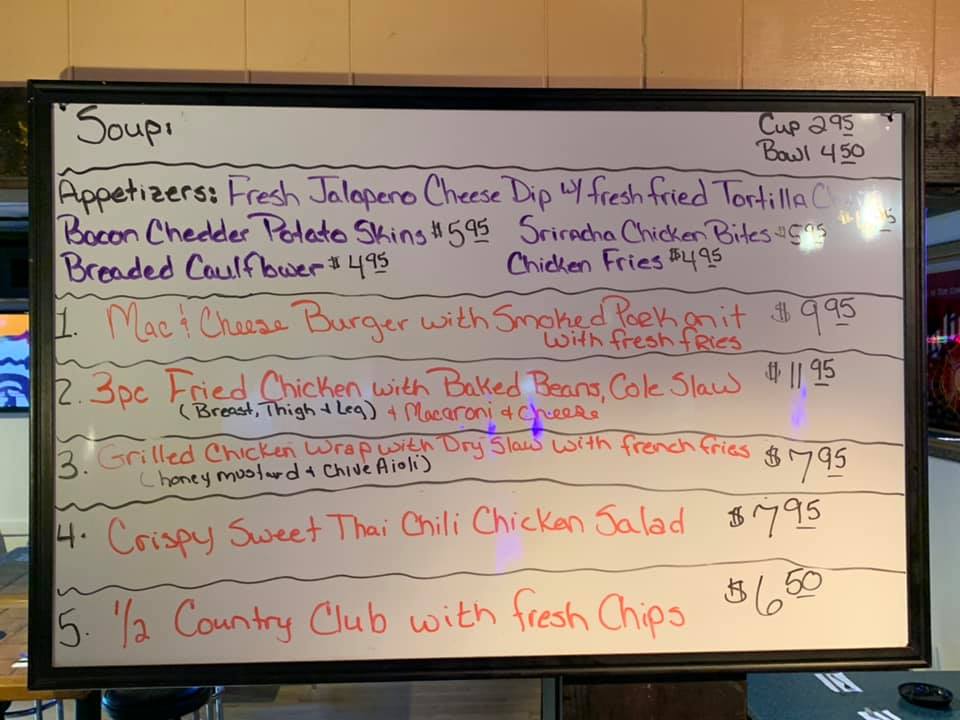 Soup:
Cup 2 95
Bowl 4 50
Appetizers: Fresh Jalapeno Cheese Dip w/ fresh fried Tortilla
Bacon Chedder Potato Skins $5 95 Sriracha Chicken Bites
Breaded Caulflower $4 95 Chicken Fries $4 95
1. Mac & Cheese Burger with Smoked Pork on it $9 95
with fresh fRies
2. 3pc Fried Chicken with Baked Beans, Cole Slaw $11 95
(Breast, Thigh + Leg) + Macaroni + cheese
3. Grilled Chicken Wrap with Dry Slaw with french fries $7 95
(honey mustard + Chive Aioli)
4. Crispy Sweet Thai Chili Chicken Salad $7 95
5. 1/2 Country Club with fresh Chips $6 50